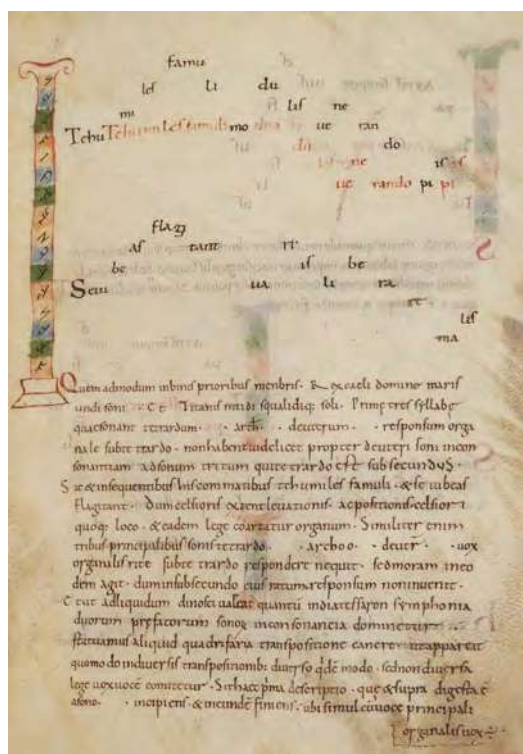 famu
les li du
mi lis ne
Te hu Te humiles famuli mo ue ran
do
is is
ue rando pi pi
flagi
as tant ri
be is be
Seiu ua li ra
et
les
ma
Quem admodum in binis prioribus membris. & ex caeli domine maris
undi soni. Et Titanis nitidi squalidiq; soli. Prime tres syllabe
quae sonant tetrardum. archō. deuterum. responsum orga
nale subtetrardo. non habent uidelicet propter deuteri soni incon
sonantiam ad sonum tritum qui tetrardo est subsecundus.
Sic & insequentibus his commatibus te humiles famuli. & se iubeas
flagitant. Dum celsiores extent leuationis. ac positionis celsiori
quoq; loco. & eadem lege coartatur organum. Similiter enim
tribus principalibus sonis tetrardo. archoo. deuterō. uox
organalis rite subtetrardo respondere nequit. sed moram in eo
dem agit. dum in subsecundo eius ratum responsum non inuenit.
Et ut ad liquidum dinosci ualeat quantū in diatessaron symphonia
duorum prefatorum sonor inconsonancia dominetur.
statuamus aliquid quadrifaria transpositione canere. ut appareat
quomodo in diuersis transpositionib; diuerso qdē modo. sed non diuersa
lege uox uoce comitetur. Sit haec pma descriptio. que & supra digesta ē
a sono. incipiens & in eunde finiens. ubi simul cū uoce principali
organalis uox ē